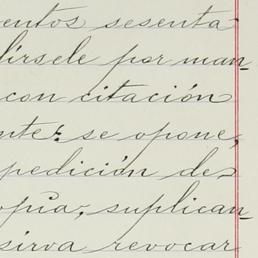 entos sesenta
dírsele por man-
con citación
nte: se opone,
pedición de
opia; suplican-
sirva revocar